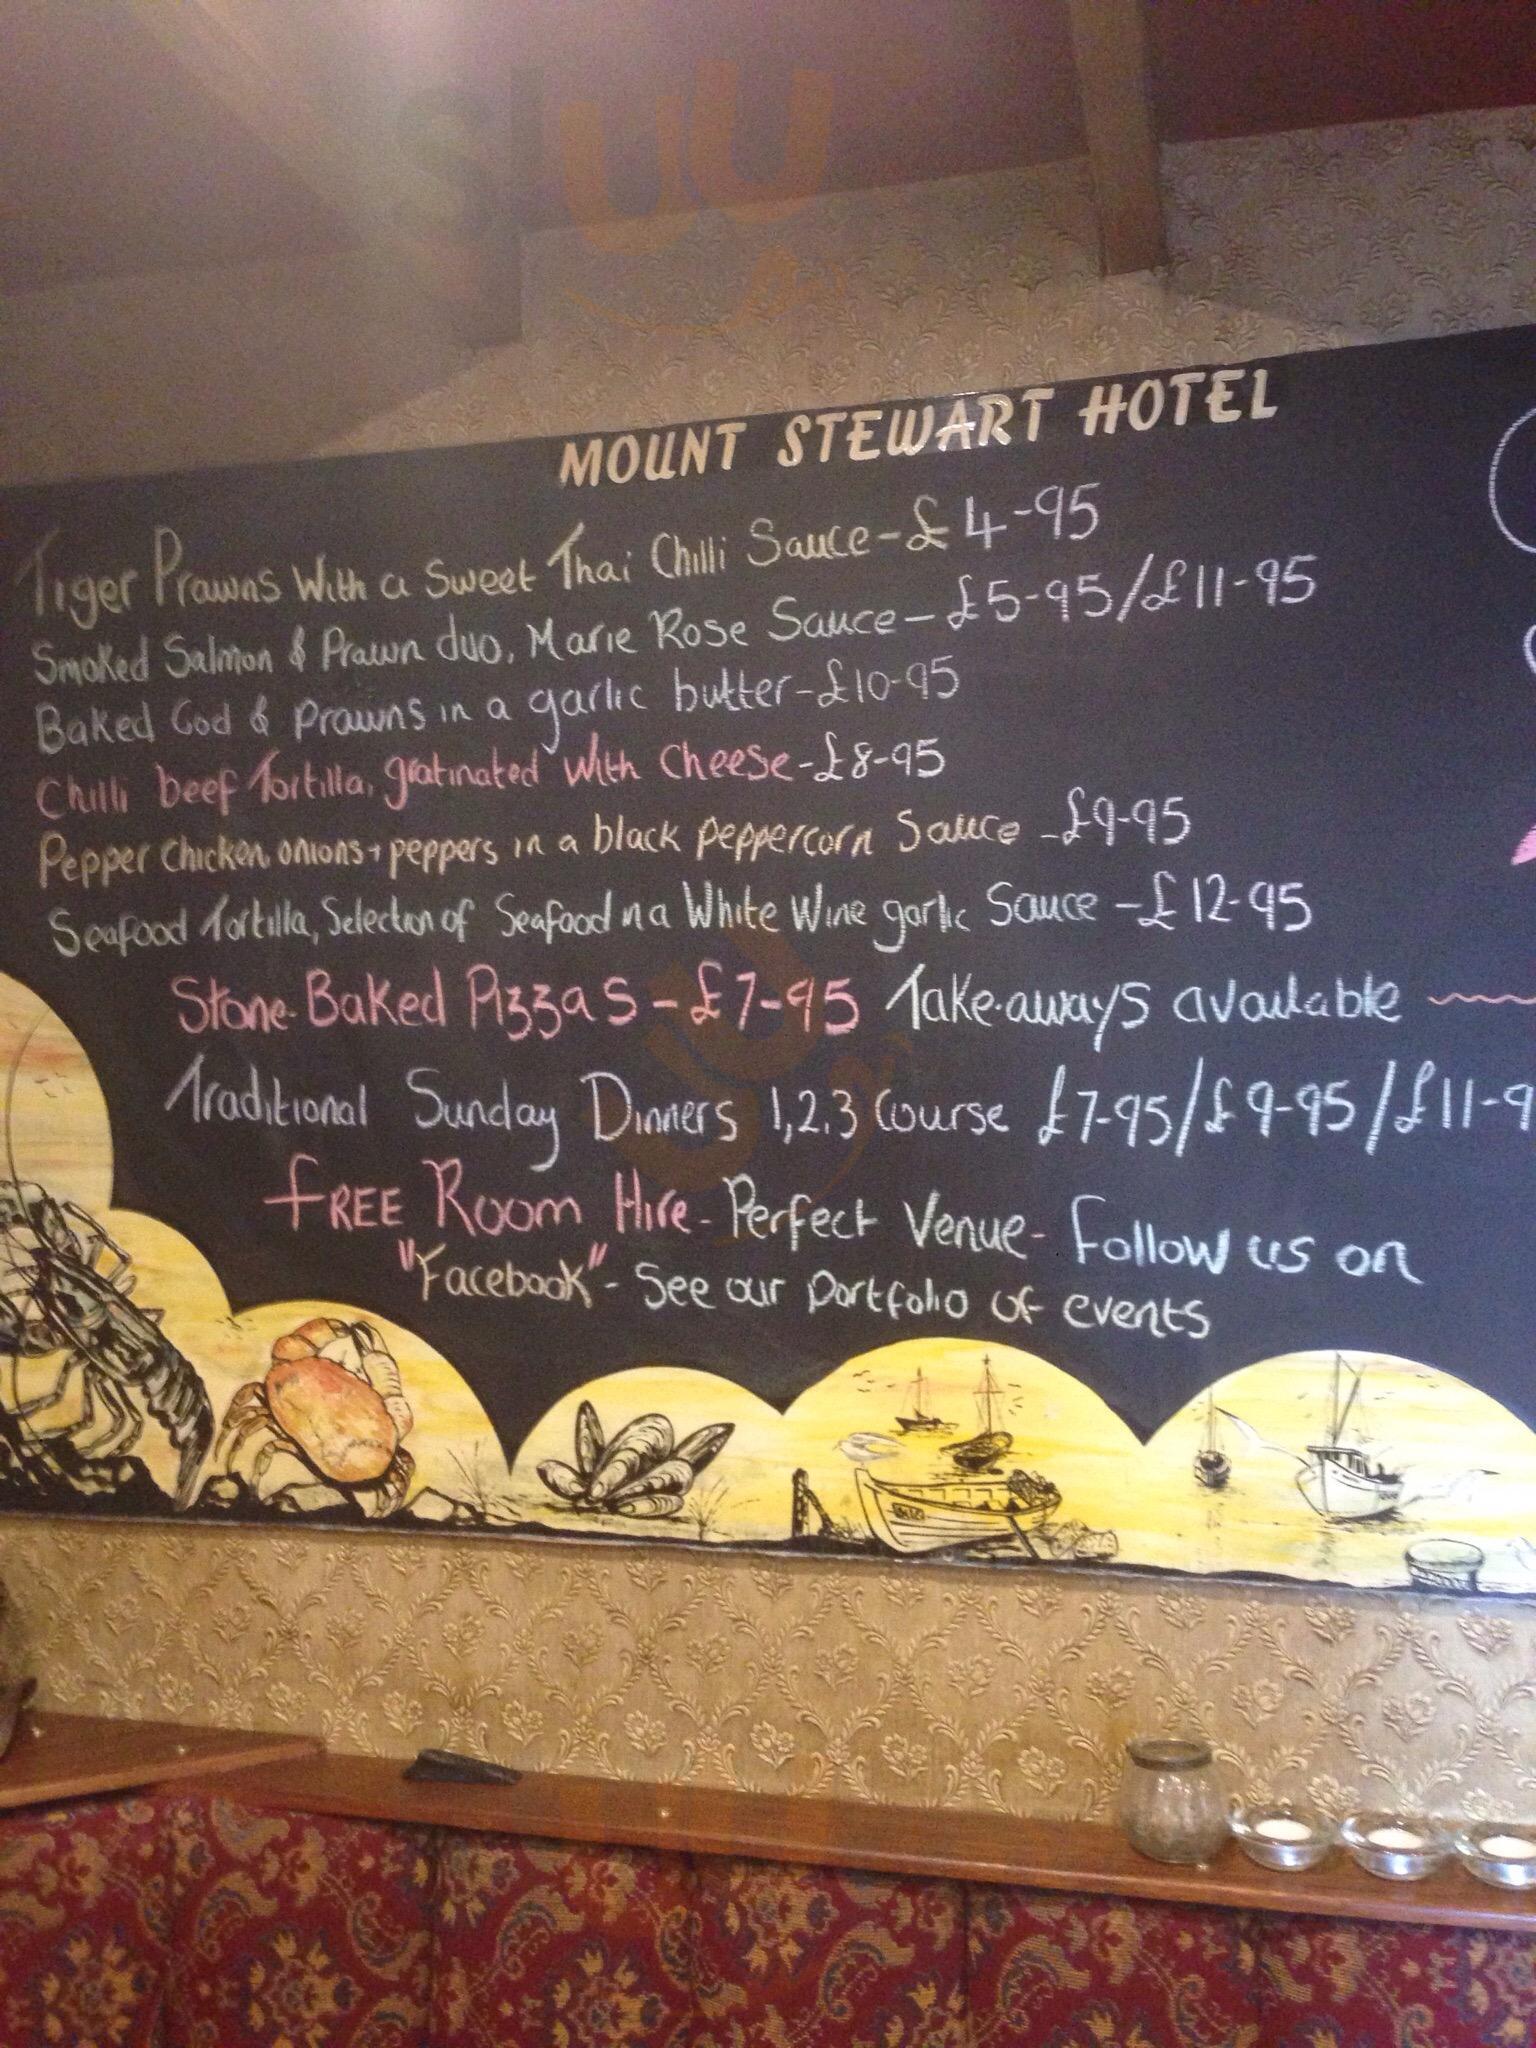 MOUNT STEWART HOTEL
Tiger Prawns With a Sweet Thai Chilli Sauce - £4-95
Smoked Salmon & Prawn duo, Marie Rose Sauce - £5-95/£11-95
Baked Cod & Prawns in a garlic butter - £10-95
Chilli beef Tortilla, gratinated with Cheese - £8-95
Pepper Chicken, onions + peppers in a black peppercorn Sauce - £9-95
Seafood Tortilla, Selection of Seafood in a White Wine garlic Sauce - £12-95
Stone-Baked Pizzas - £7-95 Take-aways available
Traditional Sunday Dinners 1,2,3 Course £7-95/£9-95/£11-9
FREE Room Hire - Perfect Venue - Follow us on
"Facebook" - See our portfolio of events